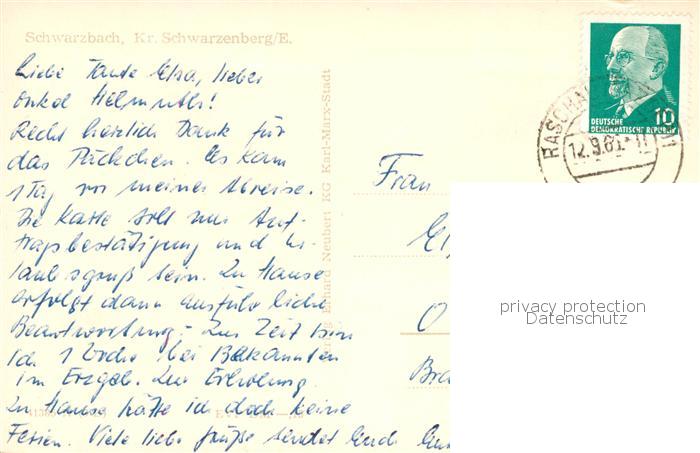 Schwarzbach, Kr. Schwarzenberg/E.
Liebe Tante Elsa, lieber
Onkel Hellmuth!
Recht herzlich Dank für
das Päckchen. Es kam
1 Tag vor meiner Abreise.
Die Karte soll nur Auf-
tragsbestätigung und Ur-
laubsgruß sein. Zu Hause
erfolgt dann ausführliche
Beantwortung. Zur Zeit bin
ich 1 Woche bei Bekannten
im Erzgeb. zur Erholung.
Zu Hause hätte ich doch keine
Ferien. Viele liebe Grüße sendet Euch
Neubert KG Karl-Marx-Stadt
10
DEUTSCHE
DEMOKRATISCHE REPUBLIK
RASCHAU
12.9.61
Frau
O
privacy protection
Datenschutz